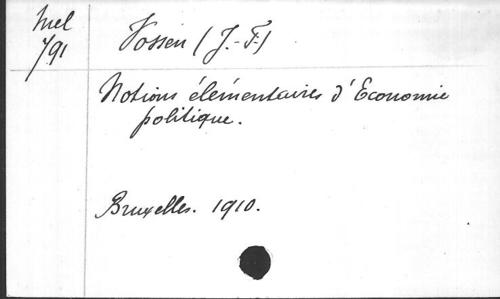 Mel
791
Vossen (J.-F.)
Notions élémentaires d'Economie
politique.
Bruxelles. 1910.